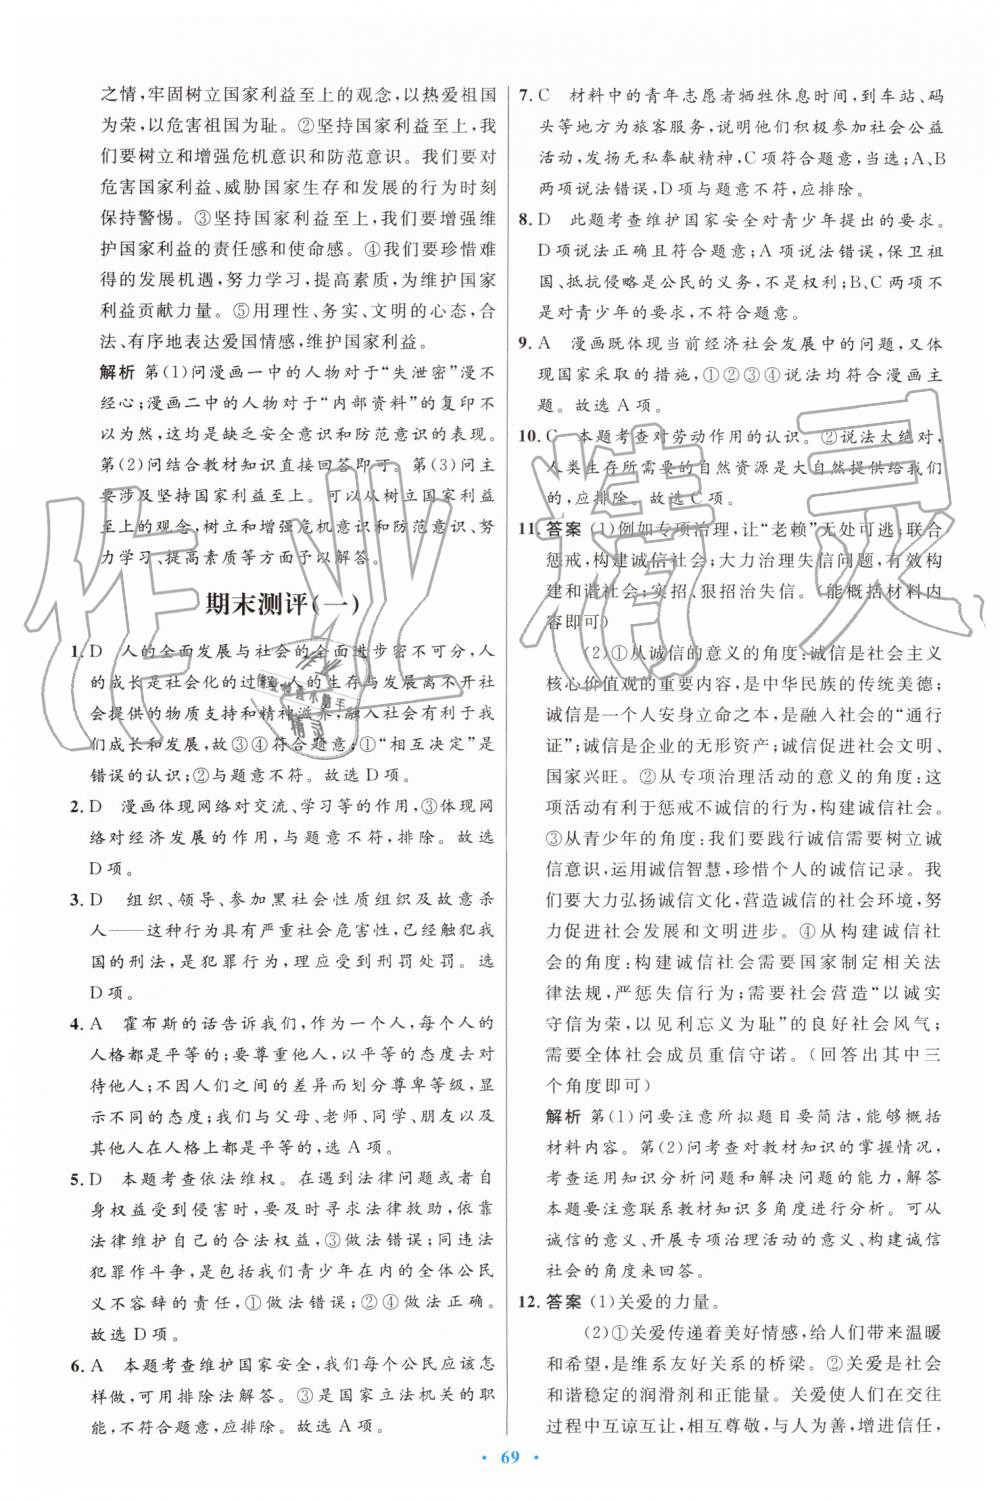 之情,牢固树立国家利益至上的观念,以热爱祖国
为荣,以危害祖国为耻。②坚持国家利益至上,我
们要树立和增强危机意识和防范意识。我们要对
危害国家利益、威胁国家生存和发展的行为时刻
保持警惕。③坚持国家利益至上,我们要增强维
护国家利益的责任感和使命感。④我们要珍惜难
得的发展机遇,努力学习,提高素质,为维护国家
利益贡献力量。⑤用理性、务实、文明的心态,合
法、有序地表达爱国情感,维护国家利益。
解析 第(1)问漫画一中的人物对于“失泄密”漫不
经心;漫画二中的人物对于“内部资料”的复印不
以为然,这均是缺乏安全意识和防范意识的表现。
第(2)问结合教材知识直接回答即可。第(3)问主
要涉及坚持国家利益至上。可以从树立国家利益
至上的观念,树立和增强危机意识和防范意识、努
力学习、提高素质等方面予以解答。
期末测评(一)
1. D 人的全面发展与社会的全面进步密不可分,人
的成长是社会化的过程,人的生存与发展离不开社
会提供的物质支持和精神滋养,融入社会有利于我
们成长和发展,故③④符合题意;①“相互决定”是
错误的认识;②与题意不符。故选D项。
2. D 漫画体现网络对交流、学习等的作用,③体现网
络对经济发展的作用,与题意不符,排除。故选
D项。
3. D 组织、领导、参加黑社会性质组织及故意杀
人——这种行为具有严重社会危害性,已经触犯我
国的刑法,是犯罪行为,理应受到刑罚处罚。选
D项。
4. A 霍布斯的话告诉我们,作为一个人,每个人的
人格都是平等的;要尊重他人,以平等的态度去对
待他人;不因人们之间的差异而划分尊卑等级,显
示不同的态度;我们与父母、老师、同学、朋友以及
其他人在人格上都是平等的,选A项。
5. D 本题考查依法维权。在遇到法律问题或者自
身权益受到侵害时,要及时寻求法律救助,依靠
法律维护自己的合法权益,③做法错误;同违法
犯罪作斗争,是包括青少年在内的全体公民
义不容辞的责任,①做法错误;②④做法正确。
故选D项。
6. A 本题考查维护国家安全,我们每个公民应该怎
样做,可用排除法解答。③是国家立法机关的职
能,不符合题意,应排除。故选A项。
7. C 材料中的青年志愿者牺牲休息时间,到车站、码
头等地方为旅客服务,说明他们积极参加社会公益
活动,发扬无私奉献精神,C项符合题意,当选;A、B
两项说法错误,D项与题意不符,应排除。
8. D 此题考查维护国家安全对青少年提出的要求。
D项说法正确且符合题意;A项说法错误,保卫祖
国、抵抗侵略是公民的义务,不是权利;B、C两项不
是对青少年的要求,不符合题意。
9. A 漫画既体现当前经济社会发展中的问题,又体
现国家采取的措施,①②③④说法均符合漫画主
题。故选A项。
10. C 本题考查对劳动作用的认识。②说法太绝对,
人类生存所需要的自然资源是大自然提供给我们
的,应排除。故选C项。
11. 答案 (1)例如专项治理,让“老赖”无处可逃;联合
惩戒,构建诚信社会;大力治理失信问题,有效构
建和谐社会;实招、狠招治失信。(能概括材料内
容即可)
(2)①从诚信的意义的角度:诚信是社会主义
核心价值观的重要内容,是中华民族的传统美德;
诚信是一个人安身立命之本,是融入社会的“通行
证”;诚信是企业的无形资产;诚信促进社会文明、
国家兴旺。②从专项治理活动的意义的角度:这
项活动有利于惩戒不诚信的行为,构建诚信社会。
③从青少年的角度:我们要践行诚信需要树立诚
信意识,运用诚信智慧,珍惜个人的诚信记录。我
们要大力弘扬诚信文化,营造诚信的社会环境,努
力促进社会发展和文明进步。④从构建诚信社
会的角度:构建诚信社会需要国家制定相关法
律法规,严惩失信行为;需要社会营造“以诚实
守信为荣,以见利忘义为耻”的良好社会风气;
需要全体社会成员重信守诺。(回答出其中三
个角度即可)
解析 第(1)问要注意所拟题目要简洁,能够概括
材料内容。第(2)问考查对教材知识的掌握情况,
考查运用知识分析问题和解决问题的能力,解答
本题要注意联系教材知识多角度进行分析。可从
诚信的意义、开展专项治理活动的意义、构建诚信
社会的角度来回答。
12. 答案 (1)关爱的力量。
(2)①关爱传递着美好情感,给人们带来温暖
和希望,是维系友好关系的桥梁。②关爱是社会
和谐稳定的润滑剂和正能量。关爱使人们在交往
过程中互谅互让,相互尊敬,与人为善,增进信任,
· 69 ·
作业精灵